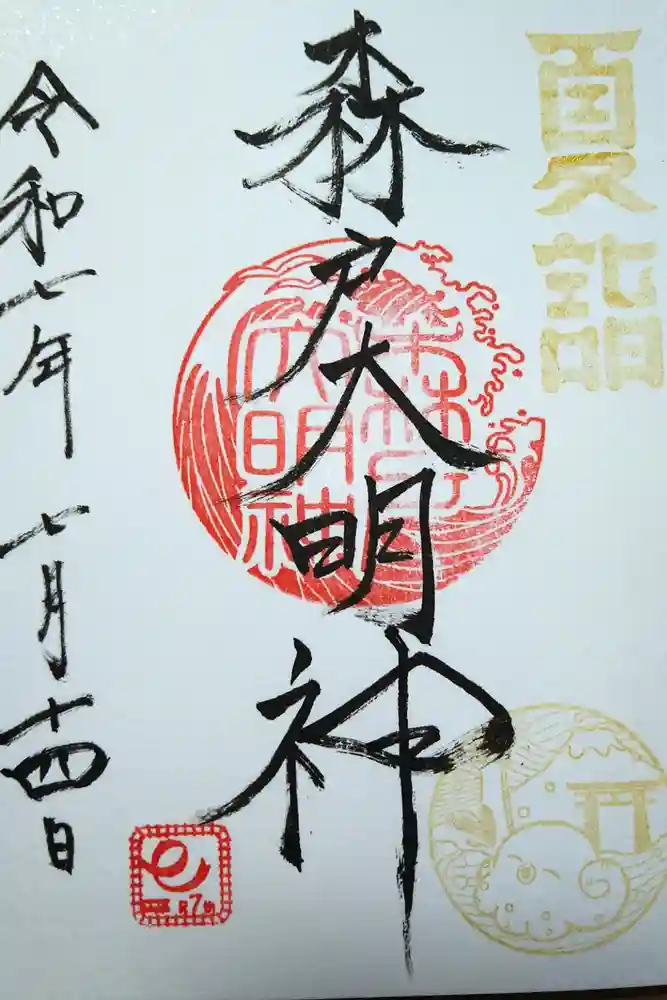 夏詣
森戸大明神
森戸
大明神
令和七年七月十四日